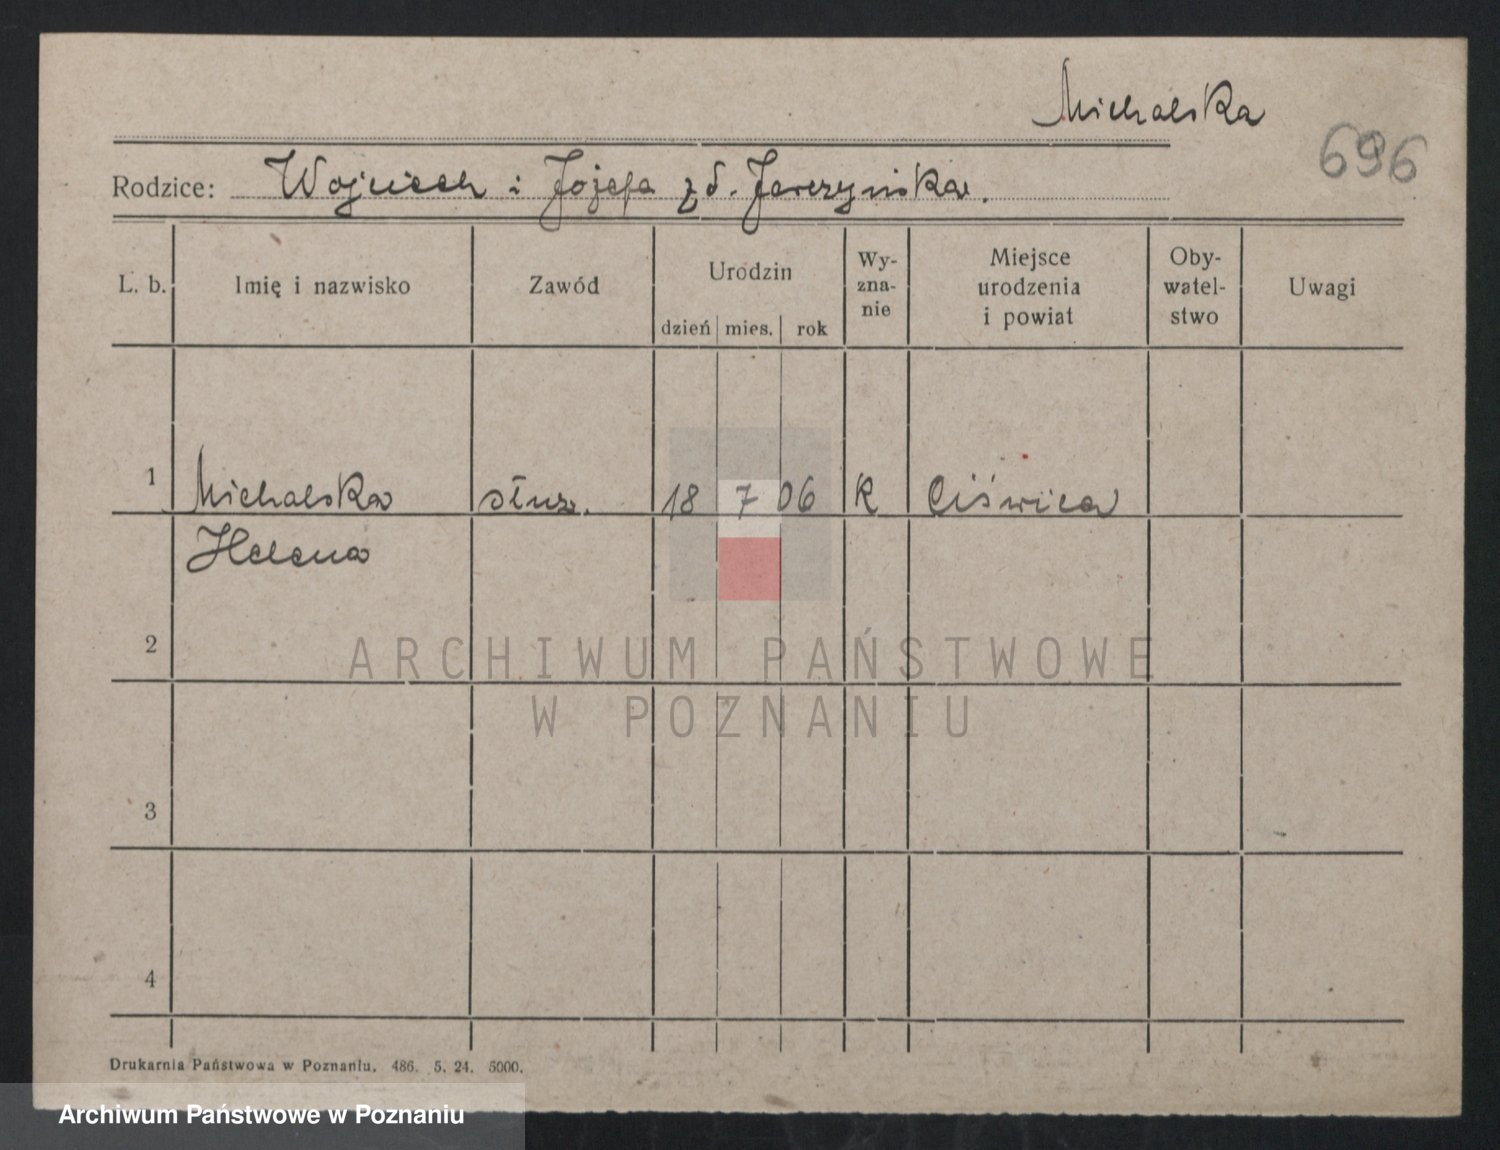 Michalska
696
Rodzice: Wojciech i Józefa zd. Jarczyńska.
L. b. Imię i nazwisko Zawód Urodzin dzień mies. rok Wy-zna-nie Miejsce urodzenia i powiat Oby-watel-stwo Uwagi
1 Michalska służ. 18 7 06 k Ciświca
Helena
2
ARCHIWUM PAŃSTWOWE
W POZNANIU
3
4
Drukarnia Państwowa w Poznaniu. 486. 5. 24. 5000.
Archiwum Państwowe w Poznaniu